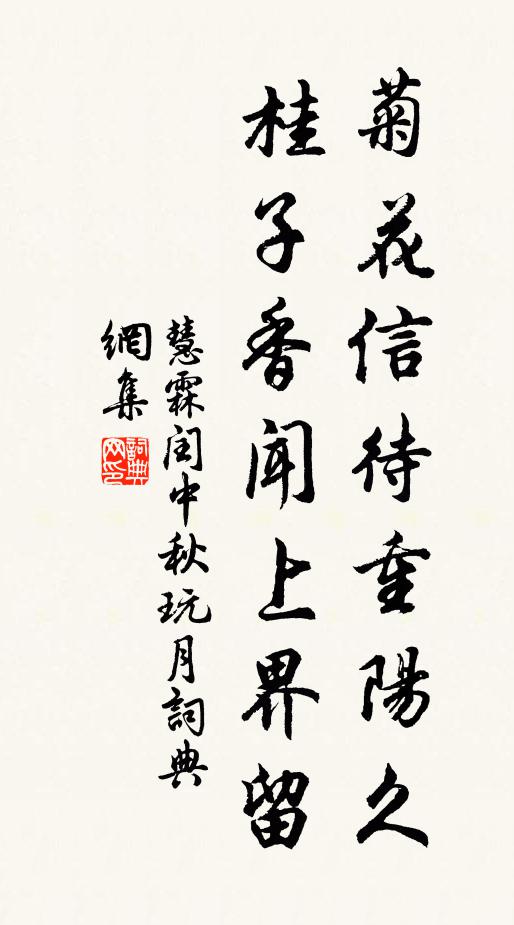 菊花信待重陽久
桂子香聞上界留
慧霖閏中秋玩月詞典
網集
詞典
网印